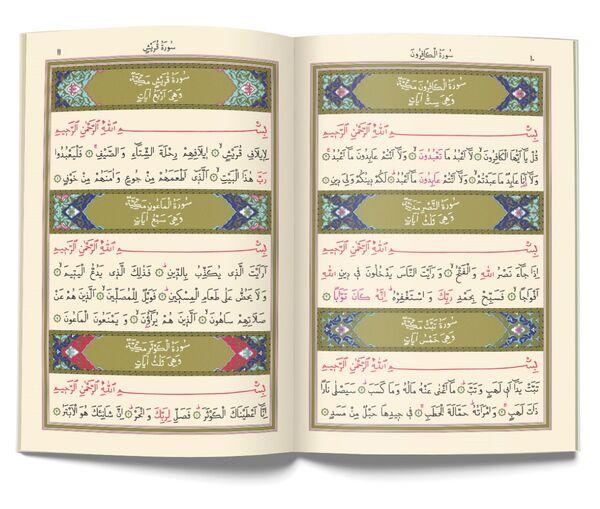 ١٠ سُورَةُ الْكَافِرُونَ
سُورَةُ الْكَافِرُونَ مَكِّيَّةٌ
وَهِيَ سِتُّ آيَاتٍ
بِسْمِ اللّٰهِ الرَّحْمٰنِ الرَّحِيمِ
قُلْ يَٓا اَيُّهَا الْكَافِرُونَۙ ۝ لَٓا اَعْبُدُ مَا تَعْبُدُونَۙ ۝ وَلَٓا اَنْتُمْ عَابِدُونَ مَٓا اَعْبُدُۚ ۝
وَلَٓا اَنَا عَابِدٌ مَا عَبَدْتُمْۙ ۝ وَلَٓا اَنْتُمْ عَابِدُونَ مَٓا اَعْبُدُۜ ۝ لَكُمْ دِينُكُمْ وَلِيَ دِينِ ۝
سُورَةُ النَّصْرِ مَدَنِيَّةٌ
وَهِيَ ثَلَاثُ آيَاتٍ
بِسْمِ اللّٰهِ الرَّحْمٰنِ الرَّحِيمِ
اِذَا جَٓاءَ نَصْرُ اللّٰهِ وَالْفَتْحُۙ ۝ وَرَاَيْتَ النَّاسَ يَدْخُلُونَ فِي دِينِ اللّٰهِ
اَفْوَاجًاۙ ۝ فَسَبِّحْ بِحَمْدِ رَبِّكَ وَاسْتَغْفِرْهُۜ اِنَّهُ كَانَ تَوَّابًا ۝
سُورَةُ تَبَّتْ مَكِّيَّةٌ
وَهِيَ خَمْسُ آيَاتٍ
بِسْمِ اللّٰهِ الرَّحْمٰنِ الرَّحِيمِ
تَبَّتْ يَدَٓا اَبِي لَهَبٍ وَتَبَّۜ ۝ مَٓا اَغْنٰى عَنْهُ مَالُهُ وَمَا كَسَبَۜ ۝ سَيَصْلٰى نَارًا
ذَاتَ لَهَبٍۚ ۝ وَامْرَاَتُهُۜ حَمَّالَةَ الْحَطَبِۚ ۝ فِي جِيدِهَا حَبْلٌ مِنْ مَسَدٍ ۝
سُورَةُ قُرَيْشٍ ١١
سُورَةُ قُرَيْشٍ مَكِّيَّةٌ
وَهِيَ اَرْبَعُ آيَاتٍ
بِسْمِ اللّٰهِ الرَّحْمٰنِ الرَّحِيمِ
لِاِيلَافِ قُرَيْشٍۙ ۝ اِيلَافِهِمْ رِحْلَةَ الشِّتَٓاءِ وَالصَّيْفِۚ ۝ فَلْيَعْبُدُوا
رَبَّ هٰذَا الْبَيْتِۙ ۝ اَلَّذِٓي اَطْعَمَهُمْ مِنْ جُوعٍ وَاٰمَنَهُمْ مِنْ خَوْفٍ ۝
سُورَةُ الْمَاعُونَ مَكِّيَّةٌ
وَهِيَ سَبْعُ آيَاتٍ
بِسْمِ اللّٰهِ الرَّحْمٰنِ الرَّحِيمِ
اَرَاَيْتَ الَّذِي يُكَذِّبُ بِالدِّينِۜ ۝ فَذٰلِكَ الَّذِي يَدُعُّ الْيَتِيمَۙ ۝
وَلَا يَحُضُّ عَلٰى طَعَامِ الْمِسْكِينِۜ ۝ فَوَيْلٌ لِلْمُصَلِّينَۙ ۝ اَلَّذِينَ هُمْ عَنْ
صَلَاتِهِمْ سَاهُونَۙ ۝ اَلَّذِينَ هُمْ يُرَٓاؤُنَۙ ۝ وَيَمْنَعُونَ الْمَاعُونَ ۝
سُورَةُ الْكَوْثَرِ مَكِّيَّةٌ
وَهِيَ ثَلَاثُ آيَاتٍ
بِسْمِ اللّٰهِ الرَّحْمٰنِ الرَّحِيمِ
اِنَّٓا اَعْطَيْنَاكَ الْكَوْثَرَۜ ۝ فَصَلِّ لِرَبِّكَ وَانْحَرْۜ ۝ اِنَّ شَانِئَكَ هُوَ الْاَبْتَرُ ۝